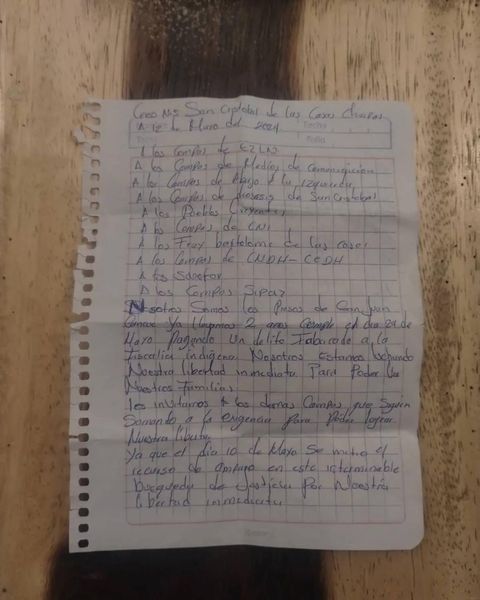 Cereso No5 San Cristobal de las Casas Chiapas
A 12 de Mayo del 2024
Fecha
Folio
A los Compas de EZLN
A los Compas de Medios de Comunicación
A los Compas de Abajo A la izquierda
A los Compas de Diosesis de San Cristobal
A los Pueblos Creyentes
A los Compas de CNI
A los Fray bartolome de las casas
A los Compas de CNDH - CEDH
A los
A los Compas Sipaz
Nosotros Somos los Presos de San Juan
Cancuc Ya llevamos 2 anos Cumple el dia 29 de
Mayo Pagando Un delito Fabricado a la
Fiscalia indigena Nosotros Estamos luchando
Nuestra libertad inmediata Para Poder Ver
Nuestros Familias
les invitamos A los demas Compas que Siguen
Somando a la exigencia para Poder lograr
Nuestra libertad
Ya que el dia 10 de Mayo Se metio el
recurso de amparo en esta interminable
busqueda de Justicia Por Nuestra
libertad inmediata